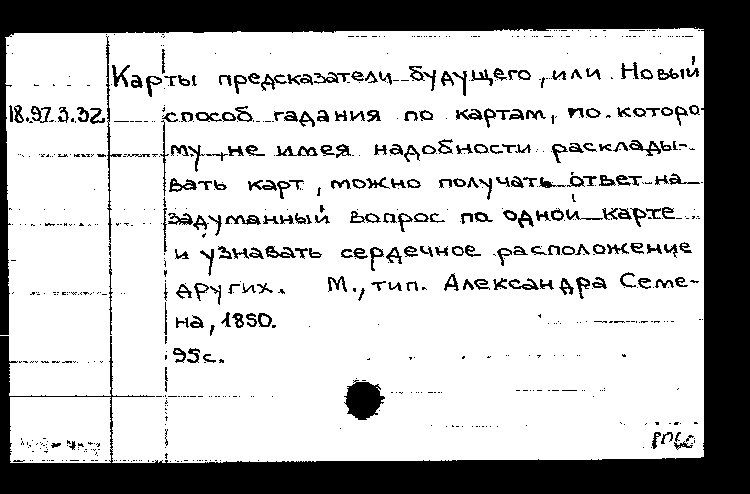 Карты предсказатели будущего, или Новый
18.97.3.32 способ гадания по картам, по которо-
му, не имея надобности расклады-
вать карт, можно получать ответ на
задуманный вопрос по одной карте
и узнавать сердечное расположение
других. М., тип. Александра Семе-
на, 1850.
95 с.